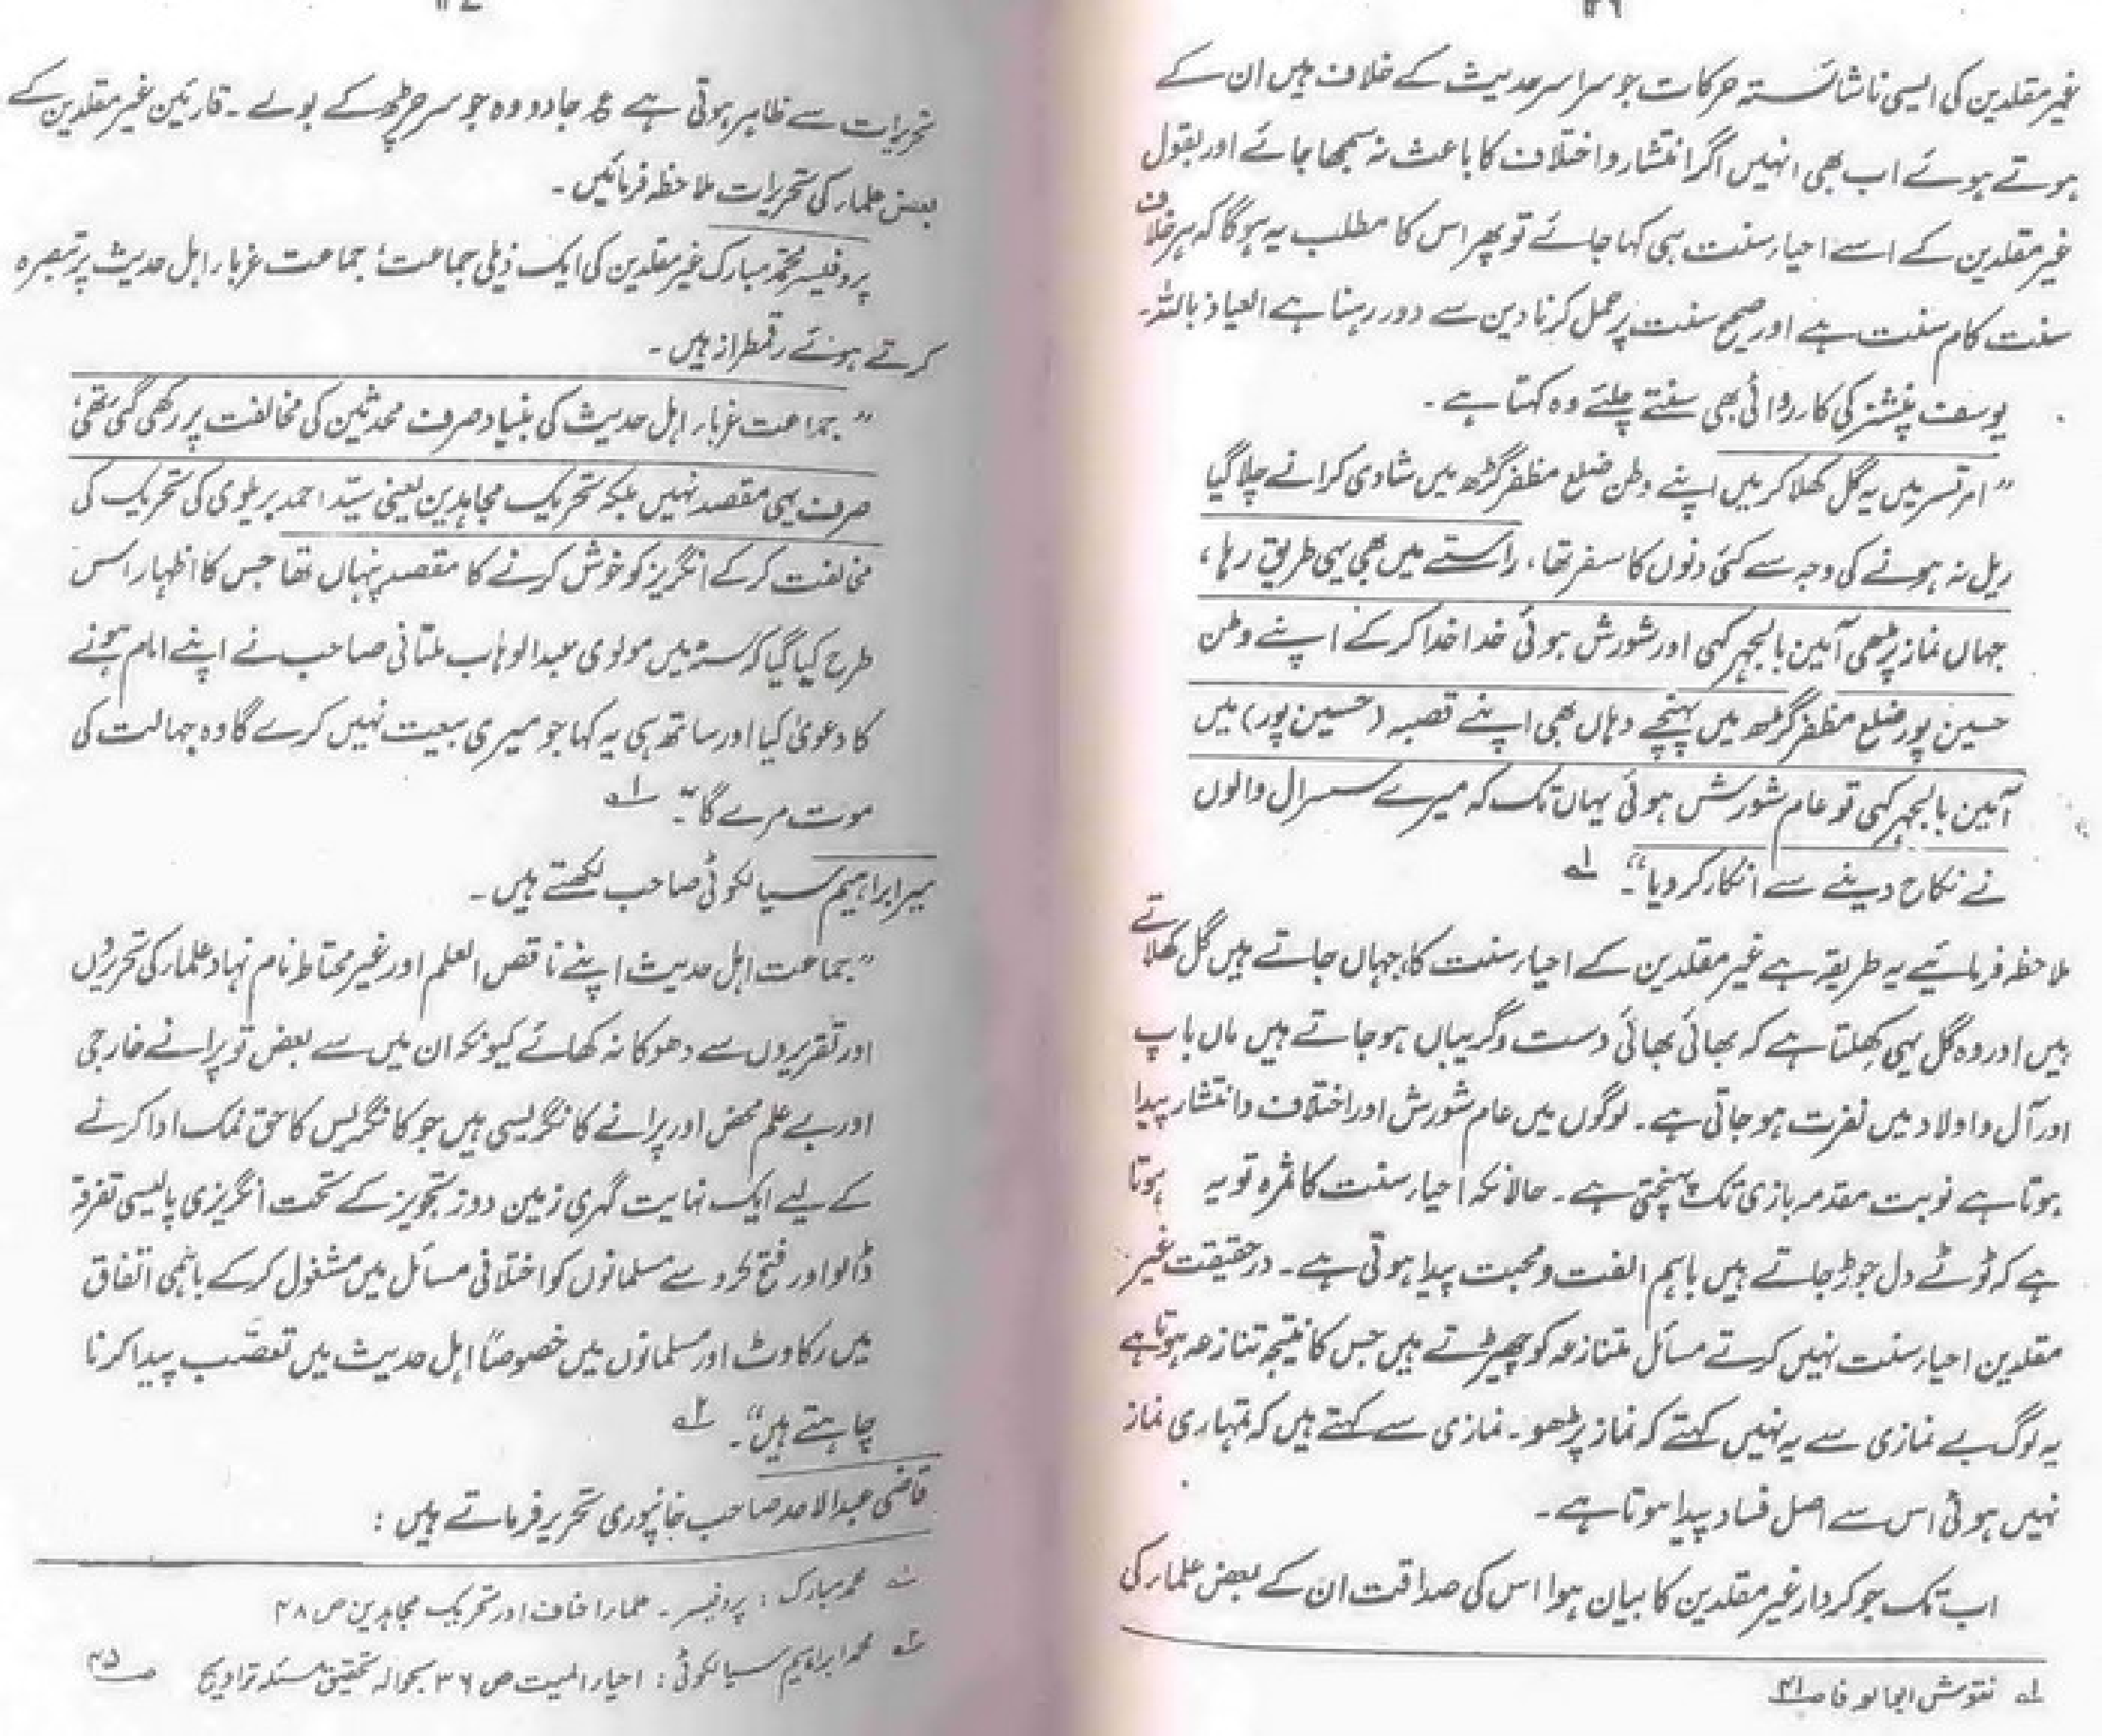 غیر مقلدین کی ایسی ناشائستہ حرکات جو سراسر حدیث کے خلاف ہیں ان کے
ہوتے ہوئے اب بھی انہیں اگر انتشار و اختلاف کا باعث نہ سمجھا جائے اور بقول
غیر مقلدین کے اسے احیاء سنت ہی کہا جائے تو پھر اس کا مطلب یہ ہوگا کہ ہر خلاف
سنت کام سنت ہے اور صحیح سنت پر عمل کرنا دین سے دور رہنا ہے العیاذ باللہ۔
یوسف پنشنر کی کارروائی بھی سنتے چلئے وہ کہتا ہے ۔
” امرتسر میں یہ گل کھلا کر میں اپنے وطن ضلع مظفر گڑھ میں شادی کرانے چلا گیا
ریل نہ ہونے کی وجہ سے کئی دنوں کا سفر تھا، راستے میں بھی یہی طریق رہا،
جہاں نماز پڑھی آمین بالجہر کہی اور شورش ہوئی خدا خدا کر کے اپنے وطن
حسین پور ضلع مظفر گڑھ میں پہنچے وہاں بھی اپنے قصبہ (حسین پور) میں
آمین بالجہر کہی تو عام شورش ہوئی یہاں تک کہ میرے سسرال والوں
نے نکاح دینے سے انکار کر دیا“۔ ؎۱
ملاحظہ فرمائیے یہ طریقہ ہے غیر مقلدین کے احیاء سنت کا، جہاں جاتے ہیں گل کھلاتے
ہیں اور وہ گل یہی کھلتا ہے کہ بھائی بھائی دست و گریباں ہو جاتے ہیں ماں باپ
اور آل و اولاد میں نفرت ہو جاتی ہے ۔ لوگوں میں عام شورش اور اختلاف و انتشار پیدا
ہوتا ہے نوبت مقدمہ بازی تک پہنچتی ہے ۔ حالانکہ احیاء سنت کا ثمرہ تو یہ ہوتا
ہے کہ ٹوٹے دل جوڑ جاتے ہیں باہم الفت و محبت پیدا ہوتی ہے ۔ درحقیقت غیر
مقلدین احیاء سنت نہیں کرتے مسائل متنازعہ کو چھیڑتے ہیں جس کا نتیجہ تنازعہ ہوتا ہے
یہ لوگ بے نمازی سے یہ نہیں کہتے کہ نماز پڑھو ۔ نمازی سے کہتے ہیں کہ تمہاری نماز
نہیں ہوئی اس سے اصل فساد پیدا ہوتا ہے ۔
اب تک جو کردار غیر مقلدین کا بیان ہوا اس کی صداقت ان کے بعض علماء کی
؎۱ نقوش ابو الوفا ص۴۱
تحریرات سے ظاہر ہوتی ہے ؏ جادو وہ جو سر چڑھ کے بولے ۔ قارئین غیر مقلدین کے
بعض علماء کی تحریرات ملاحظہ فرمائیں ۔
پروفیسر محمد مبارک غیر مقلدین کی ایک ذیلی جماعت ؛ جماعت غرباء اہل حدیث پر تبصرہ
کرتے ہوئے رقمطراز ہیں ۔
” جماعت غرباء اہل حدیث کی بنیاد صرف محدثین کی مخالفت پر رکھی گئی تھی ؛
صرف یہی مقصد نہیں بلکہ تحریک مجاہدین یعنی سید احمد بریلوی کی تحریک کی
مخالفت کر کے انگریز کو خوش کرنے کا مقصد پنہاں تھا جس کا اظہار اس
طرح کیا گیا کہ سنہ میں مولوی عبدالوہاب ملتانی صاحب نے اپنے امام ہونے
کا دعویٰ کیا اور ساتھ ہی یہ کہا جو میری بیعت نہیں کرے گا وہ جہالت کی
موت مرے گا“۔ ؎۱
میر ابراہیم سیالکوٹی صاحب لکھتے ہیں ۔
” جماعت اہل حدیث اپنے ناقص العلم اور غیر محتاط نام نہاد علماء کی تحریروں
اور تقریروں سے دھوکا نہ کھائے کیونکہ ان میں سے بعض تو پرانے خارجی
اور بے علم محض اور پرانے کانگریسی ہیں جو کانگریس کا حق نمک ادا کرنے
کے لیے ایک نہایت گہری زمین دوز تجویز کے تحت انگریزی پالیسی تفرقہ
ڈالو اور فتح کرو سے مسلمانوں کو اختلافی مسائل میں مشغول کر کے باہمی اتفاق
میں رکاوٹ اور مسلمانوں میں خصوصاً اہل حدیث میں تعصب پیدا کرنا
چاہتے ہیں“۔ ؎۲
قاضی عبدالاحد صاحب خانپوری تحریر فرماتے ہیں :
؎۱ محمد مبارک : پروفیسر ۔ علماء احناف اور تحریک مجاہدین ص ۴۸
؎۲ محمد ابراہیم سیالکوٹی : احیاء المیت ص ۳۶ بحوالہ تحقیق مسئلہ تراویح ص۴۵